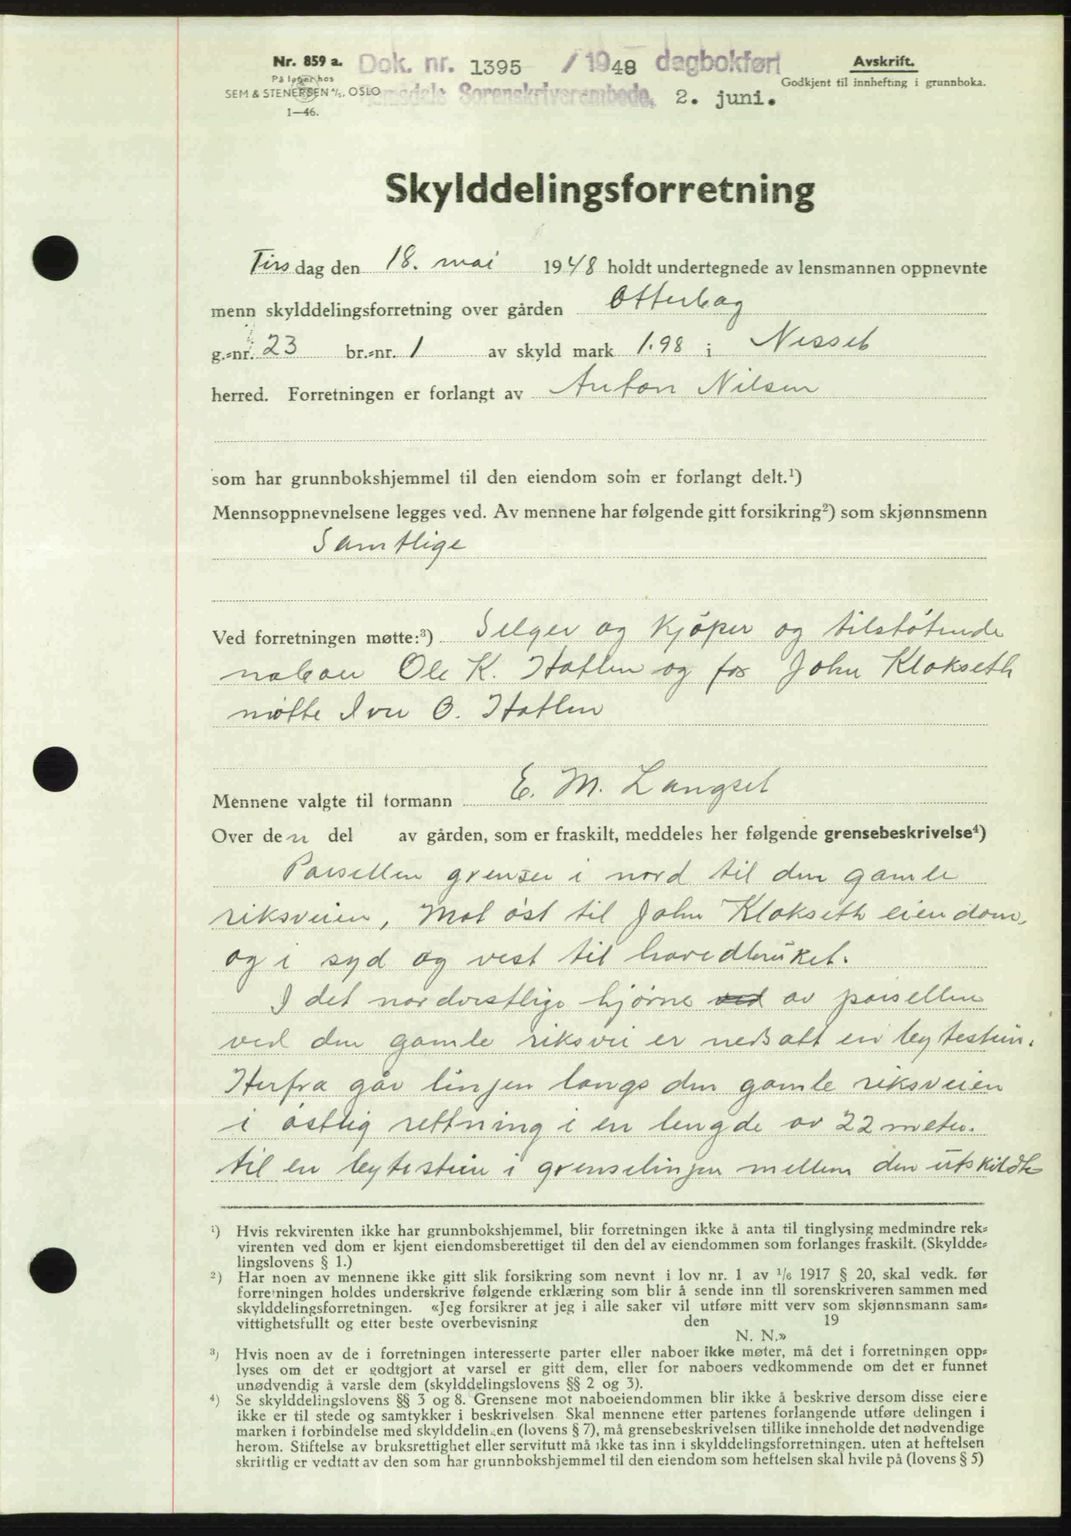 Nr. 859 a.
På lager hos
SEM & STENERSEN A/S, OSLO
1—46.
Dok. nr. 1395 / 1948 dagbokført
Sorenskriverembede, 2. juni.
Avskrift.
Godkjent til innhefting i grunnboka.
Skylddelingsforretning
Tirsdag den 18. mai 1948 holdt undertegnede av lensmannen oppnevnte
menn skylddelingsforretning over gården Otterbog
g.-nr. 23 br.-nr. 1 av skyld mark 1.98 i Nesset
herred. Forretningen er forlangt av Anton Nilsen
som har grunnbokshjemmel til den eiendom som er forlangt delt.¹)
Mennsoppnevnelsene legges ved. Av mennene har følgende gitt forsikring²) som skjønnsmenn
Samtlige
Ved forretningen møtte:³) Selger og Kjøper og tilstøtende
naboer Ole K. Hatlen og for John Klokseth
møtte Iver O. Hatlen
Mennene valgte til formann E. M. Langset
Over den del av gården, som er fraskilt, meddeles her følgende grensebeskrivelse⁴)
Parsellen grenser i nord til den gamle
riksveien, Mot øst til John Klokseth eiendom,
og i syd og vest til hovedbruket.
I det nordvestlige hjørne ved av parsellen
ved den gamle riksvei er nedsatt en bytestein.
Herfra går linjen langs den gamle riksveien
i østlig rettning i en lengde av 22 meter.
til en bytestein i grenselinjen mellem den utskildte
¹) Hvis rekvirenten ikke har grunnbokshjemmel, blir forretningen ikke å anta til tinglysing medmindre rek-
virenten ved dom er kjent eiendomsberettiget til den del av eiendommen som forlanges fraskilt. (Skyldde-
lingslovens § 1.)
²) Har noen av mennene ikke gitt slik forsikring som nevnt i lov nr. 1 av 1/6 1917 § 20, skal vedk. før
forretningen holdes underskrive følgende erklæring som blir å sende inn til sorenskriveren sammen med
skylddelingsforretningen. «Jeg forsikrer at jeg i alle saker vil utføre mitt verv som skjønnsmann sam-
vittighetsfullt og etter beste overbevisning den 19
N. N.»
³) Hvis noen av de i forretningen interesserte parter eller naboer ikke møter, må det i forretningen opp-
lyses om det er godtgjort at varsel er gitt dem, eller for naboers vedkommende om det er funnet
unødvendig å varsle dem (skylddelingslovens §§ 2 og 3).
⁴) Se skylddelingslovens §§ 3 og 8. Grensene mot naboeiendommen blir ikke å beskrive dersom disse eiere
ikke er til stede og samtykker i beskrivelsen Skal mennene etter partenes forlangende utføre delingen i
marken i forbindelse med skylddelingen (lovens § 7), må grensebeskrivelsen tillike inneholde det nødvendige
herom. Stiftelse av bruksrettighet eller servitutt må ikke tas inn i skylddelingsforretningen. uten at heftelsen
skriftlig er vedtatt av den som har grunnbokshjemmel til den eiendom som heftelsen skal hvile på (lovens § 5)